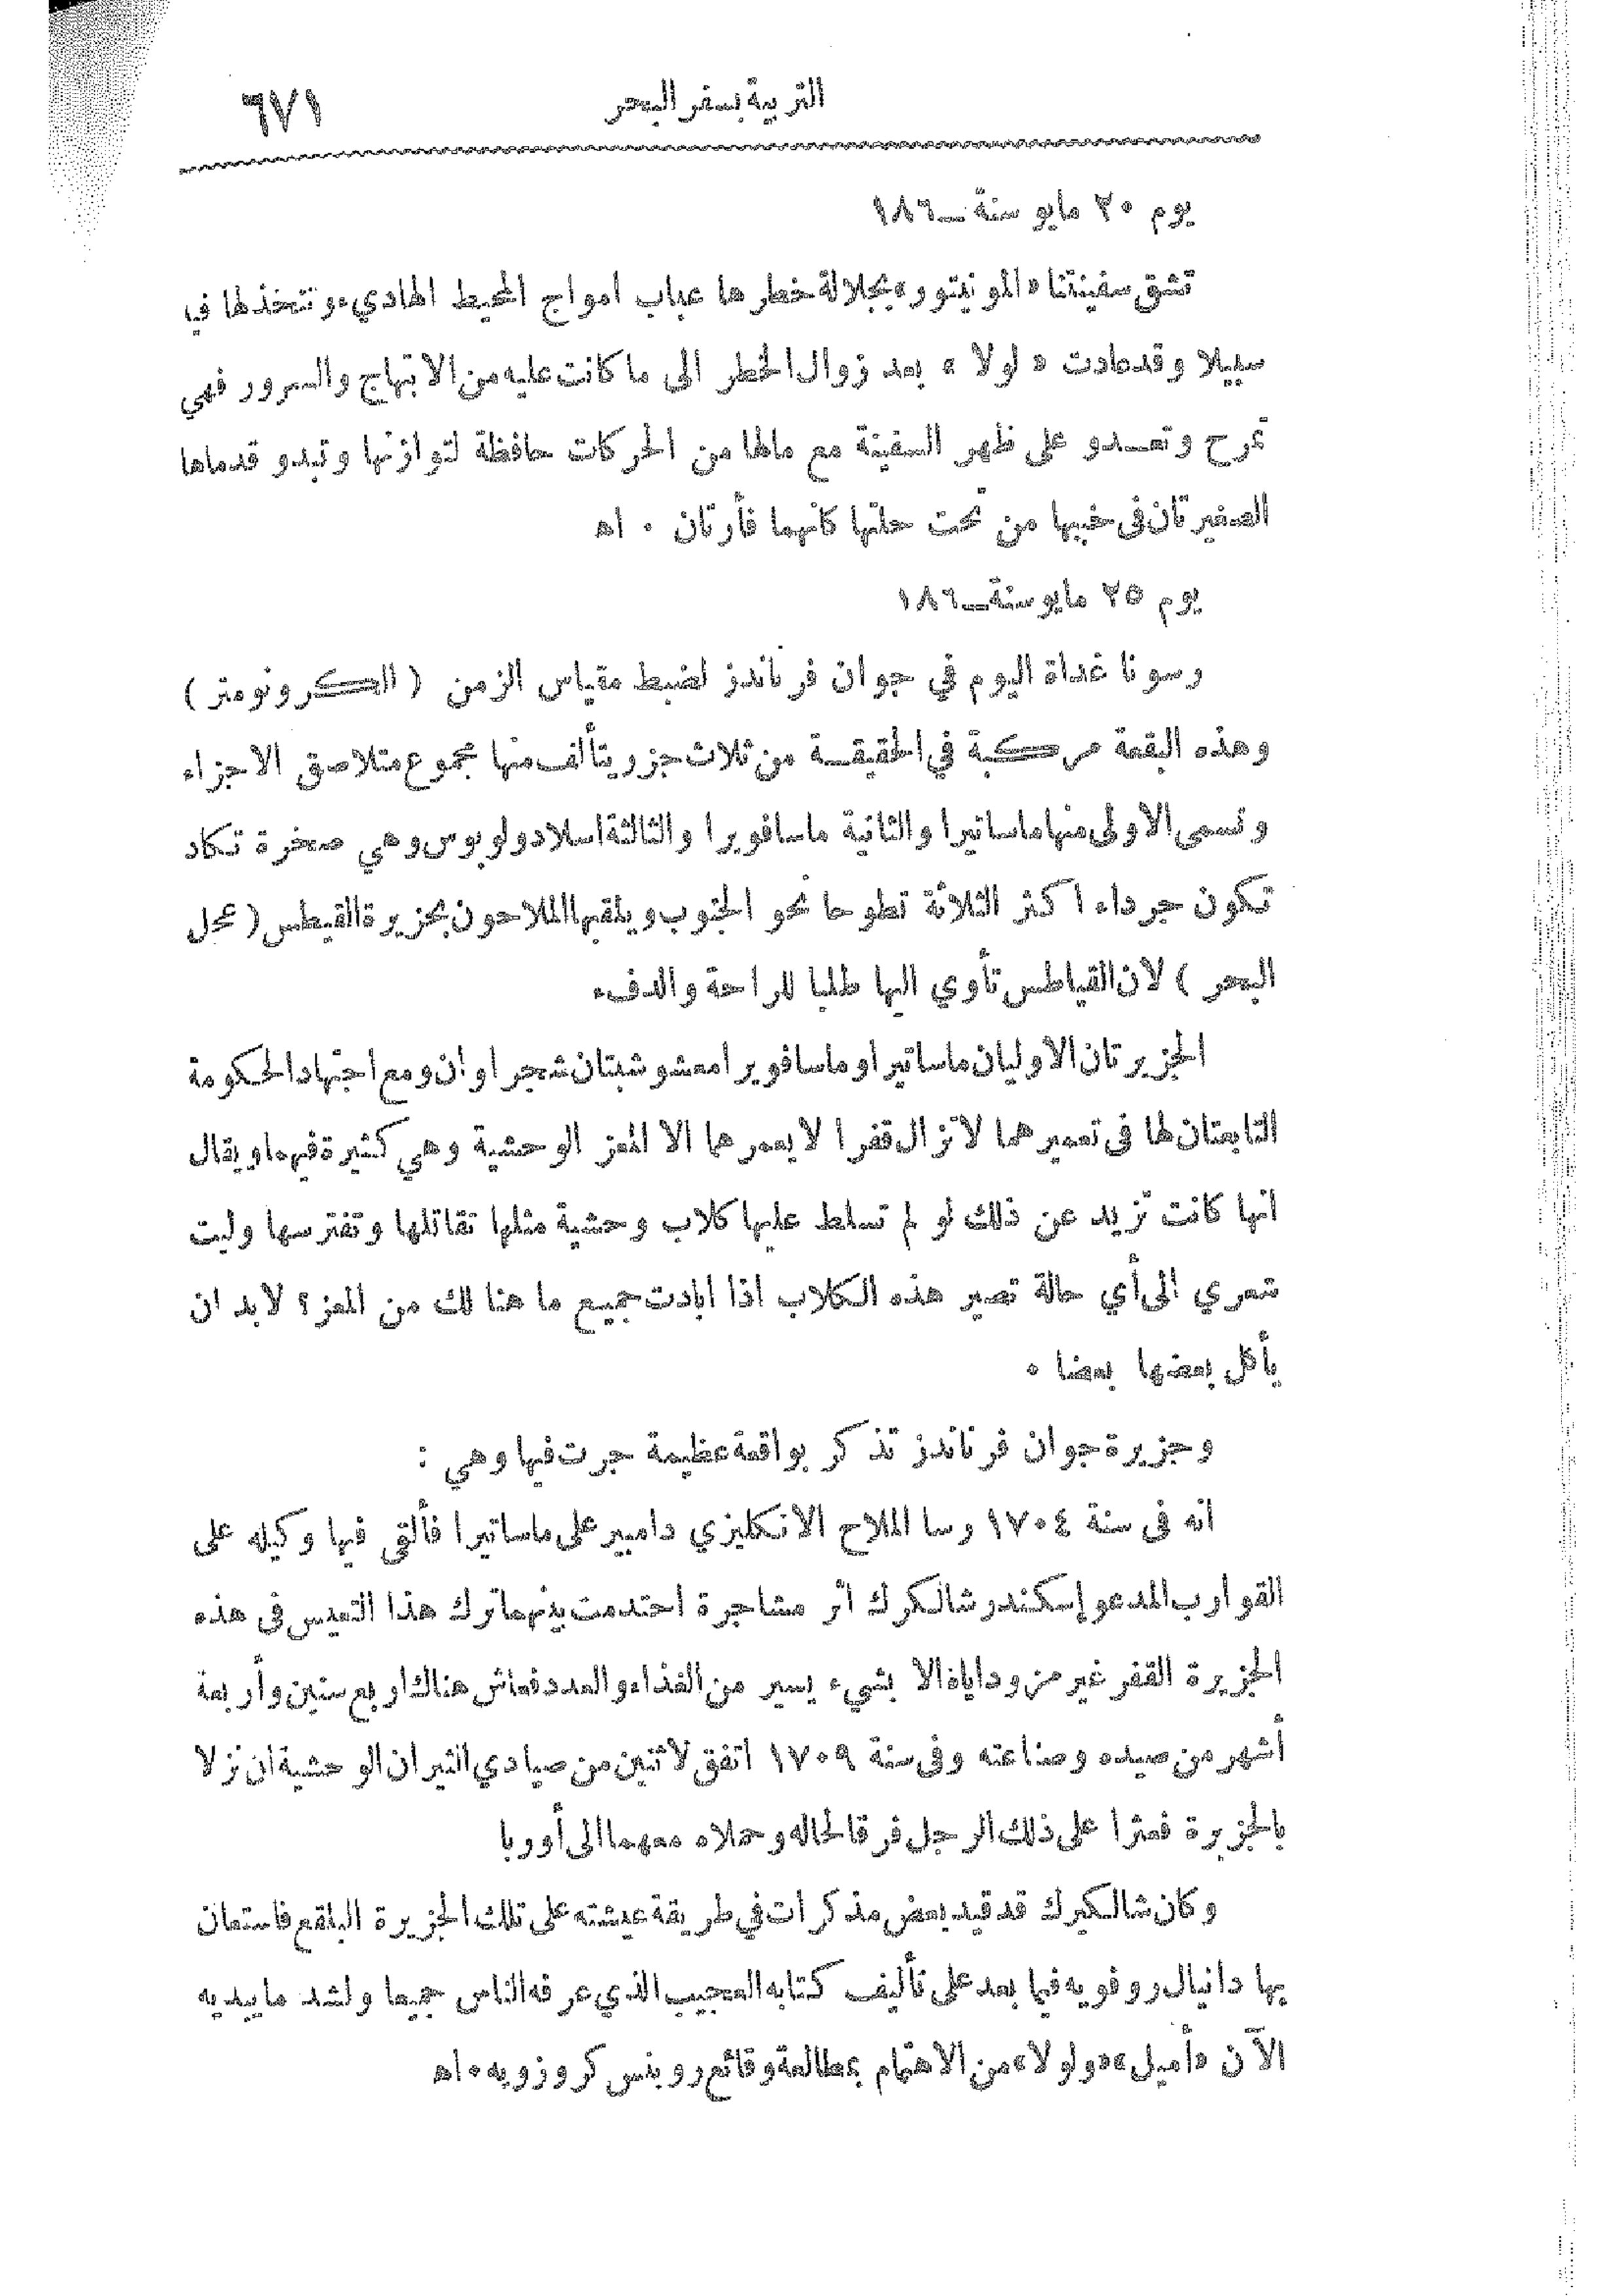 التربية بسفر البحر
٦٧١
يوم ٢٠ مايو سنة ـ ١٨٦
تشق سفينتنا «المونيتور» بجلالة خطرها عباب امواج المحيط الهاديء وتتخذ لها في
سبيلا وقد عادت « لولا » بعد زوال الخطر الى ما كانت عليه من الابتهاج والسرور فهي
تمرح وتعــدو على ظهر السفينة مع مالها من الحركات حافظة لتوازنها وتبدو قدماها
الصغيرتان في خببها من تحت حلتها كانهما فأرتان ٠ اهـ
يوم ٢٥ مايو سنة ـ ١٨٦
رسونا غداة اليوم في جوان فرناندز لضبط مقياس الزمن ( الكرونومتر )
وهذه البقعة مركبة في الحقيقــة من ثلاث جزر يتألف منها مجموع متلاصق الاجزاء
وتسمى الاولى منها ماساتيرا والثانية ماسافويرا والثالثة اسلادولوبوس وهي صخرة تكاد
تكون جرداء اكثر الثلاثة تطوحا نحو الجنوب ويلقبها الملاحون بجزيرة القيطس ( عجل
البحر ) لان القياطس تأوي اليها طلبا للراحة والدفء
الجزيرتان الاوليان ماساتيرا وماسافويرا معشوشبتان شجراوان ومع اجتهاد الحكومة
التابعتان لها في تعميرهما لا تزال قفرا لا يعمرهما الا المعز الوحشية وهي كثيرة فيهما ويقال
انها كانت تزيد عن ذلك لو لم تسلط عليها كلاب وحشية مثلها تقاتلها وتفترسها وليت
شعري الى أي حالة تصير هذه الكلاب اذا ابادت جميع ما هنا لك من المعز؟ لا بد ان
يأكل بعضها بعضا ٠
وجزيرة جوان فرناندز تذكر بواقعة عظيمة جرت فيها وهي :
انه في سنة ١٧٠٤ رسا الملاح الانكليزي دامبير على ماساتيرا فألقى فيها وكيله على
القوارب المدعو إسكندر شالكرك اثر مشاجرة احتدمت بينهما ترك هذا التعيس في هذه
الجزيرة القفر غير مزود اياه الا بشيء يسير من الغذاء والعدد فعاش هناك اربع سنين وأربعة
أشهر من صيده وصناعته وفي سنة ١٧٠٩ اتفق لاثنين من صيادي الثيران الوحشية ان نزلا
بالجزيرة فعثرا على ذلك الرجل فرقا لحاله وحملاه معهما الى أوروبا
وكان شالكيرك قد قيد بعض مذكرات في طريقة عيشته على تلك الجزيرة البلقع فاستعان
بها دانيال روفويه فيما بعد على تأليف كتابه العجيب الذي عرفه الناس جميعا ولشد ما يبديه
الآن «أميل» «ولولا» من الاهتمام بمطالعة وقائع روبنس كروزويه ٠ اهـ